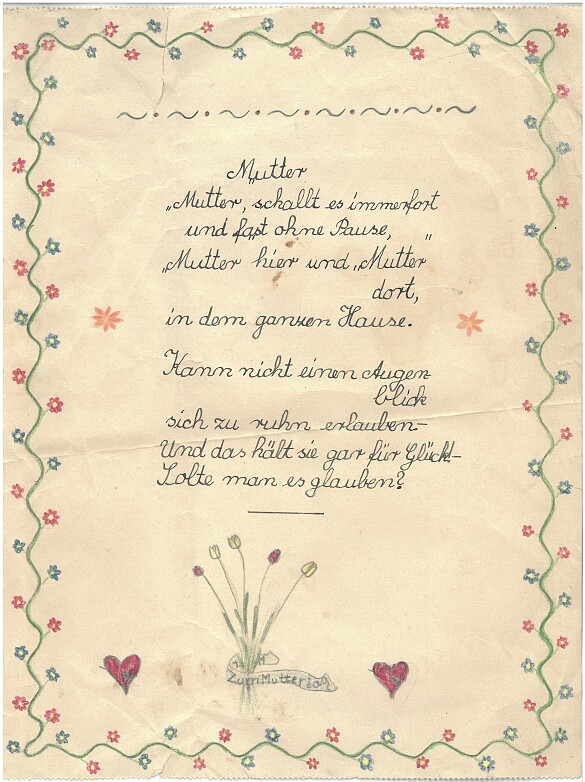 Mutter
„Mutter, schallt es immerfort
und fast ohne Pause,
„Mutter hier und „Mutter"
dort,
in dem ganzen Hause.
Kann nicht einen Augen-
blick
sich zu ruhn erlauben-
Und das hält sie gar für Glück!-
Solte man es glauben?
Zum Muttertag